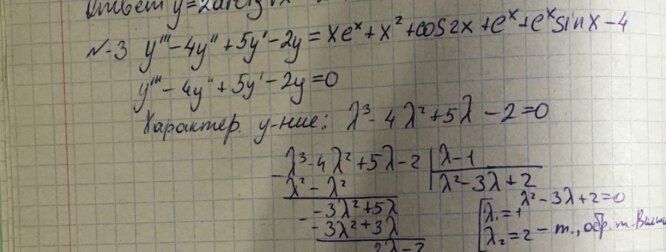 Ответ y=2arctg
№3 y''' - 4y'' + 5y' - 2y = xe^x + x^2 + cos2x + e^x + e^x sinx - 4
y''' - 4y'' + 5y' - 2y = 0
Характер. у-ние: λ^3 - 4λ^2 + 5λ - 2 = 0
λ^3 - 4λ^2 + 5λ - 2 | λ - 1
λ^2 - λ^2 | λ^2 - 3λ + 2
-3λ^2 + 5λ
-3λ^2 + 3λ
2λ - 2
λ^2 - 3λ + 2 = 0
λ_1 = 1
λ_2 = 2 - т., обр. т. Виета